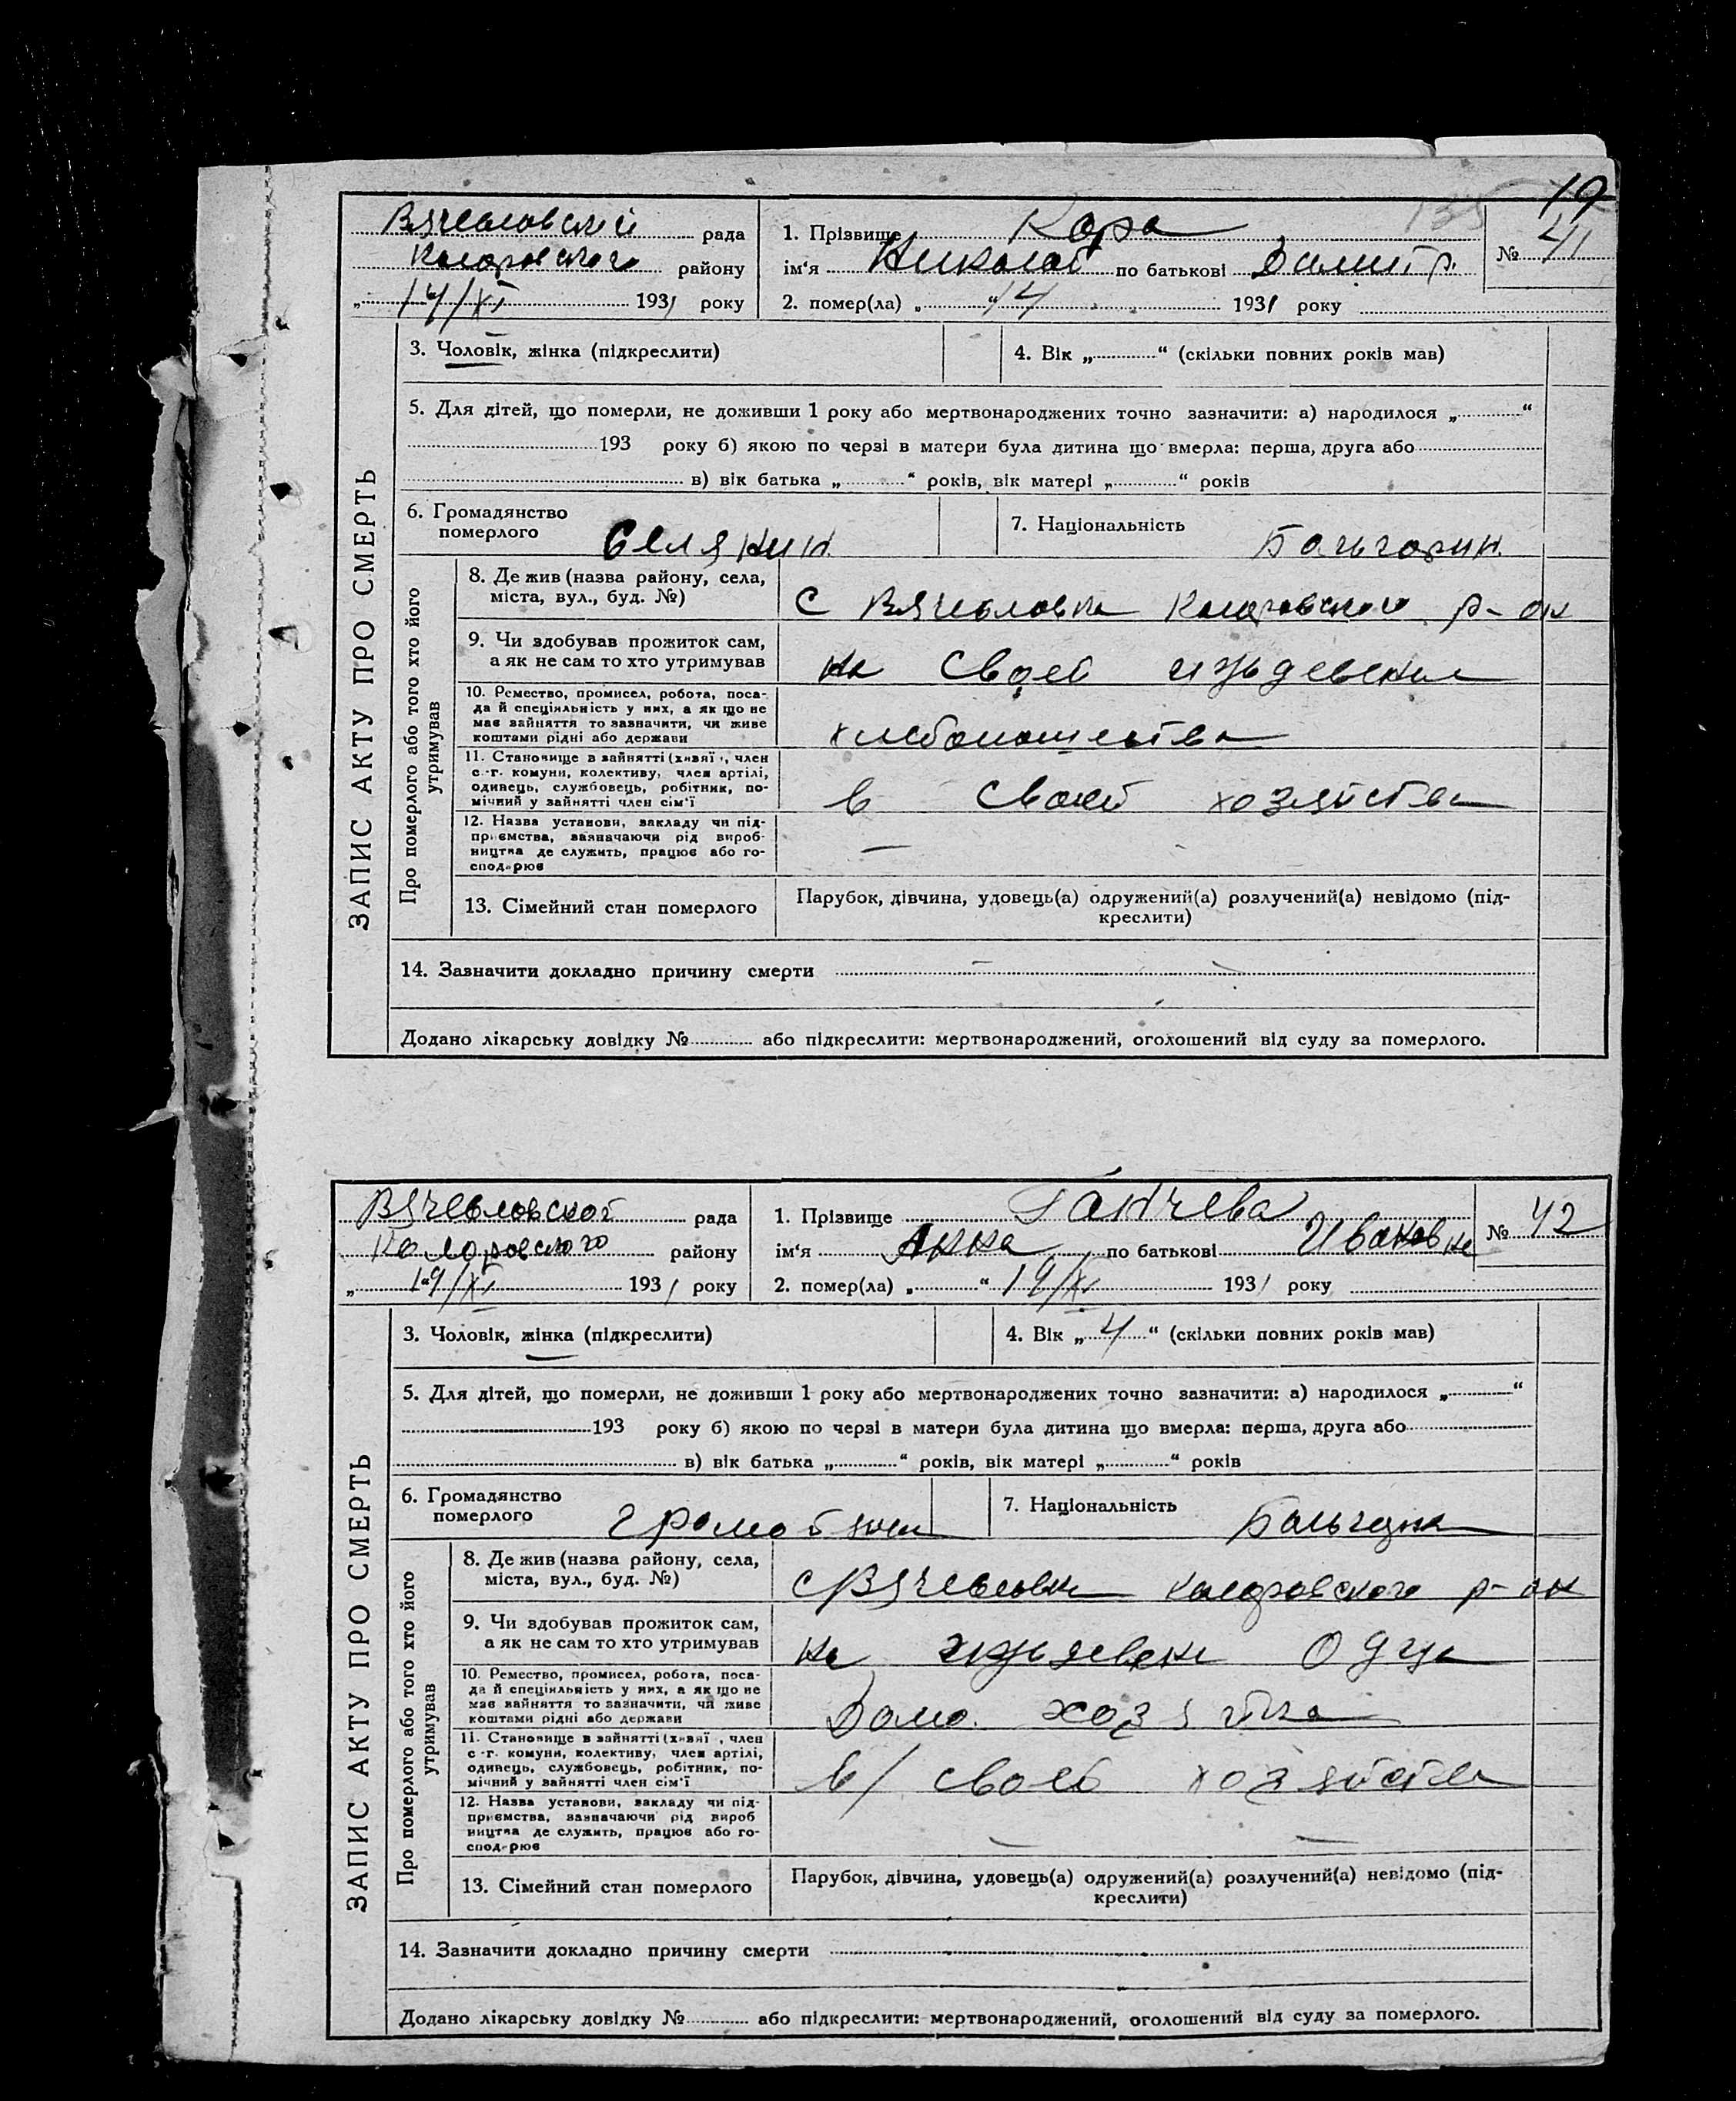 135 19
Вячеъловский рада
Коларовского району
„ 14/XI 1931 року
1. Прізвище Кара
ім‘я Николай по батькові Димитр.
№ 41
2. помер(ла) „ “ 14 1931 року
ЗАПИС АКТУ ПРО СМЕРТЬ
3. Чоловік, жінка (підкреслити)
4. Вік „ “ (скільки повних років мав)
5. Для дітей, що померли, не доживши 1 року або мертвонароджених точно зазначити: а) народилося „ “
193 року б) якою по черзі в матери була дитина що вмерла: перша, друга або
в) вік батька „ “ років, вік матері „ “ років
6. Громадянство
померлого Селянин
7. Національність Больгарин
Про померлого або того хто його
утримував
8. Де жив (назва району, села,
міста, вул., буд. №)
с Вячеъловка Коларовского р-он
9. Чи здобував прожиток сам,
а як не сам то хто утримував
на своей
10. Ремество, промисел, робота, поса-
да й спеціяльність у них, а як що не
має зайняття то зазначити, чи живе
коштами рідні або держави
11. Становище в зайнятті (хазяї, член
с.-г. комуни, колективу, член артілі,
одинець, службовець, робітник, по-
мічний у зайнятті член сім'ї
в своей хозяйства
12. Назва установи, закладу чи під-
приємства, зазначаючи рід вироб-
ництва де служить, працює або го-
сподарює
—
13. Сімейний стан померлого
Парубок, дівчина, удовець(а) одружений(а) розлучений(а) невідомо (під-
креслити)
14. Зазначити докладно причину смерти
Додано лікарську довідку № або підкреслити: мертвонароджений, оголошений від суду за померлого.
Вячеъловской рада
Коларовского району
„ 19/XI 1931 року
1. Прізвище Ганчева
ім‘я Анна по батькові Ивановна
№ 42
2. помер(ла) „ “ 19/XI 1931 року
ЗАПИС АКТУ ПРО СМЕРТЬ
3. Чоловік, жінка (підкреслити)
4. Вік „ 4 “ (скільки повних років мав)
5. Для дітей, що померли, не доживши 1 року або мертвонароджених точно зазначити: а) народилося „ “
193 року б) якою по черзі в матери була дитина що вмерла: перша, друга або
в) вік батька „ “ років, вік матері „ “ років
6. Громадянство
померлого
7. Національність
Про померлого або того хто його
утримував
8. Де жив (назва району, села,
міста, вул., буд. №)
с Вячеъловка Коларовского р-он
9. Чи здобував прожиток сам,
а як не сам то хто утримував
на
10. Ремество, промисел, робота, поса-
да й спеціяльність у них, а як що не
має зайняття то зазначити, чи живе
коштами рідні або держави
Домо. хозяйка
11. Становище в зайнятті (хазяї, член
с.-г. комуни, колективу, член артілі,
одинець, службовець, робітник, по-
мічний у зайнятті член сім'ї
в/ своей хозяйства
12. Назва установи, закладу чи під-
приємства, зазначаючи рід вироб
ництва де служить, працює або го-
сподарює
— —
13. Сімейний стан померлого
Парубок, дівчина, удовець(а) одружений(а) розлучений(а) невідомо (під-
креслити)
14. Зазначити докладно причину смерти
Додано лікарську довідку № або підкреслити: мертвонароджений, оголошений від суду за померлого.